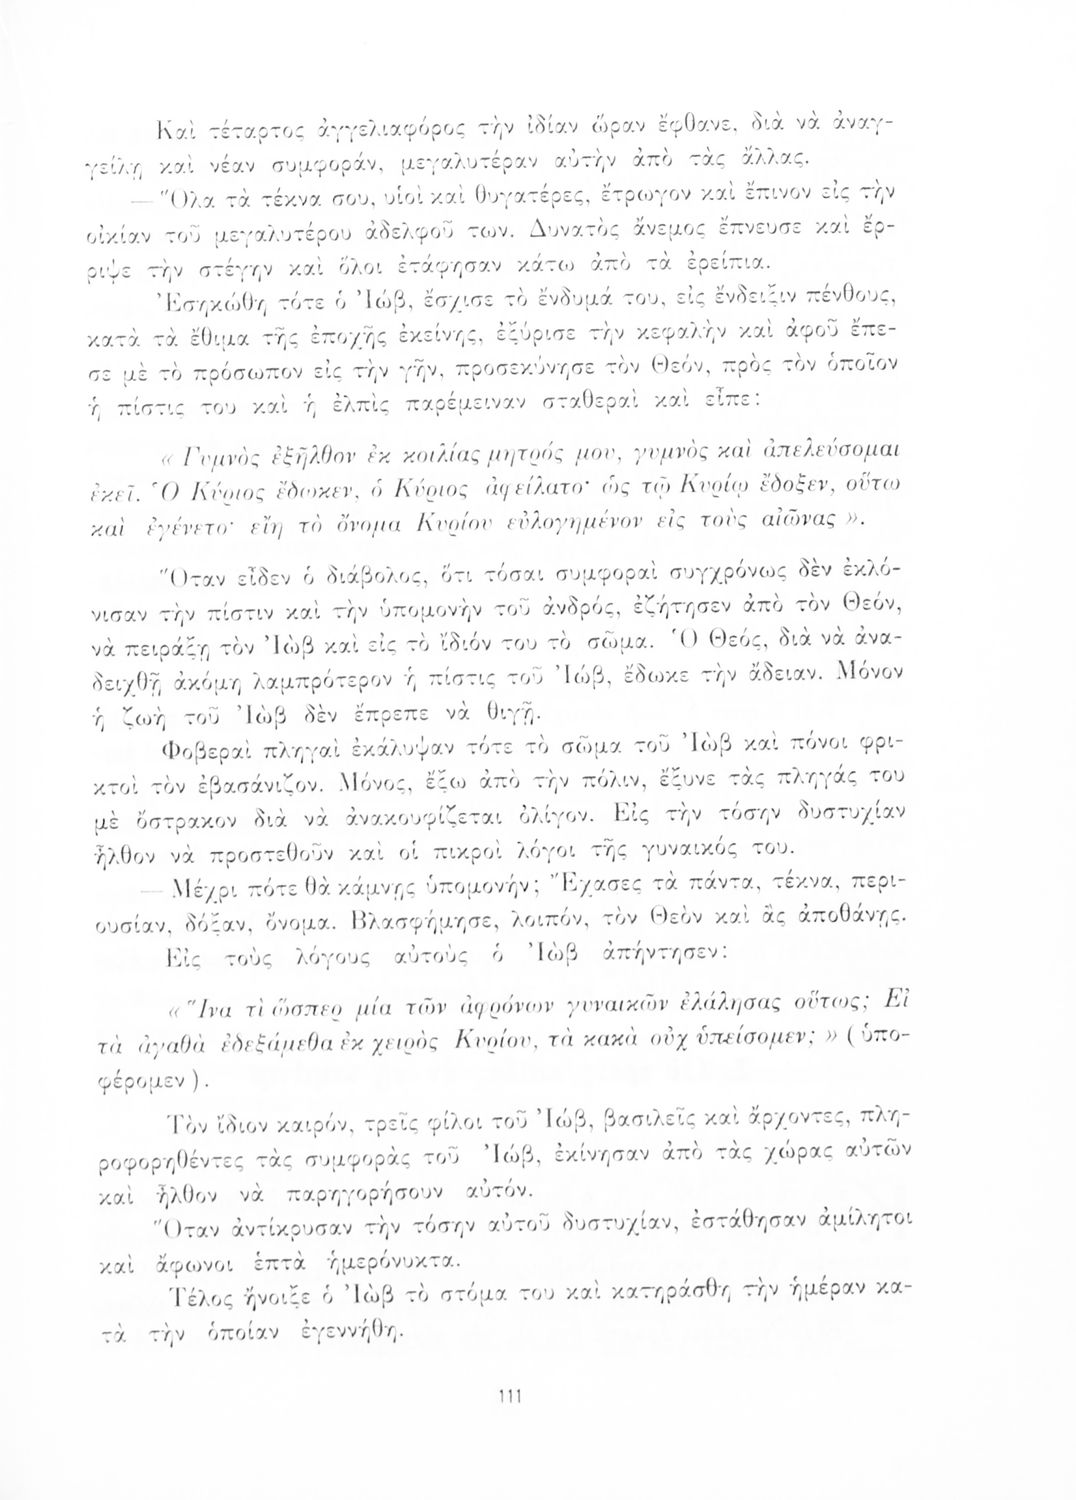 Καὶ τέταρτος ἀγγελιαφόρος τὴν ἰδίαν ὥραν ἔφθανε, διὰ νὰ ἀναγ-
γείλῃ καὶ νέαν συμφοράν, μεγαλυτέραν αὐτὴν ἀπὸ τὰς ἄλλας.
— Ὅλα τὰ τέκνα σου, υἱοὶ καὶ θυγατέρες, ἔτρωγον καὶ ἔπινον εἰς τὴν
οἰκίαν τοῦ μεγαλυτέρου ἀδελφοῦ των. Δυνατὸς ἄνεμος ἔπνευσε καὶ ἔρ-
ριψε τὴν στέγην καὶ ὅλοι ἐτάφησαν κάτω ἀπὸ τὰ ἐρείπια.
Ἐσηκώθη τότε ὁ Ἰώβ, ἔσχισε τὸ ἔνδυμά του, εἰς ἔνδειξιν πένθους,
κατὰ τὰ ἔθιμα τῆς ἐποχῆς ἐκείνης, ἐξύρισε τὴν κεφαλὴν καὶ ἀφοῦ ἔπε-
σε μὲ τὸ πρόσωπον εἰς τὴν γῆν, προσεκύνησε τὸν Θεόν, πρὸς τὸν ὁποῖον
ἡ πίστις του καὶ ἡ ἐλπὶς παρέμειναν σταθεραὶ καὶ εἶπε:
« Γυμνὸς ἐξῆλθον ἐκ κοιλίας μητρός μου, γυμνὸς καὶ ἀπελεύσομαι
ἐκεῖ. Ὁ Κύριος ἔδωκεν, ὁ Κύριος ἀφείλατο· ὡς τῷ Κυρίῳ ἔδοξεν, οὕτω
καὶ ἐγένετο· εἴη τὸ ὄνομα Κυρίου εὐλογημένον εἰς τοὺς αἰῶνας ».
Ὅταν εἶδεν ὁ διάβολος, ὅτι τόσαι συμφοραὶ συγχρόνως δὲν ἐκλό-
νισαν τὴν πίστιν καὶ τὴν ὑπομονὴν τοῦ ἀνδρός, ἐζήτησεν ἀπὸ τὸν Θεόν,
νὰ πειράξῃ τὸν Ἰὼβ καὶ εἰς τὸ ἴδιόν του τὸ σῶμα. Ὁ Θεός, διὰ νὰ ἀνα-
δειχθῇ ἀκόμη λαμπρότερον ἡ πίστις τοῦ Ἰώβ, ἔδωκε τὴν ἄδειαν. Μόνον
ἡ ζωὴ τοῦ Ἰὼβ δὲν ἔπρεπε νὰ θιγῇ.
Φοβεραὶ πληγαὶ ἐκάλυψαν τότε τὸ σῶμα τοῦ Ἰὼβ καὶ πόνοι φρι-
κτοὶ τὸν ἐβασάνιζον. Μόνος, ἔξω ἀπὸ τὴν πόλιν, ἔξυνε τὰς πληγάς του
μὲ ὄστρακον διὰ νὰ ἀνακουφίζεται ὀλίγον. Εἰς τὴν τόσην δυστυχίαν
ἦλθον νὰ προστεθοῦν καὶ οἱ πικροὶ λόγοι τῆς γυναικός του.
— Μέχρι πότε θὰ κάμνῃς ὑπομονήν; Ἔχασες τὰ πάντα, τέκνα, περι-
ουσίαν, δόξαν, ὄνομα. Βλασφήμησε, λοιπόν, τὸν Θεὸν καὶ ἂς ἀποθάνῃς.
Εἰς τοὺς λόγους αὐτοὺς ὁ Ἰὼβ ἀπήντησεν:
« Ἵνα τὶ ὥσπερ μία τῶν ἀφρόνων γυναικῶν ἐλάλησας οὕτως; Εἰ
τὰ ἀγαθὰ ἐδεξάμεθα ἐκ χειρὸς Κυρίου, τὰ κακὰ οὐχ ὑπείσομεν; » ( ὑπο-
φέρομεν ).
Τὸν ἴδιον καιρόν, τρεῖς φίλοι τοῦ Ἰώβ, βασιλεῖς καὶ ἄρχοντες, πλη-
ροφορηθέντες τὰς συμφορὰς τοῦ Ἰώβ, ἐκίνησαν ἀπὸ τὰς χώρας αὐτῶν
καὶ ἦλθον νὰ παρηγορήσουν αὐτόν.
Ὅταν ἀντίκρυσαν τὴν τόσην αὐτοῦ δυστυχίαν, ἐστάθησαν ἀμίλητοι
καὶ ἄφωνοι ἑπτὰ ἡμερόνυκτα.
Τέλος ἤνοιξε ὁ Ἰὼβ τὸ στόμα του καὶ κατηράσθη τὴν ἡμέραν κα-
τὰ τὴν ὁποίαν ἐγεννήθη.
111